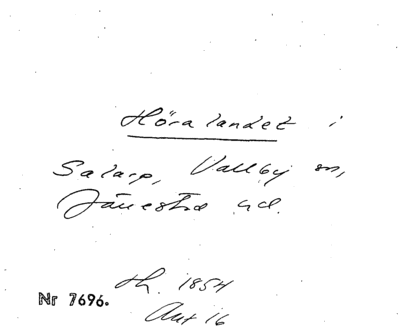 Höralandet i
Salarp, Vallby sn,
Järrestad hd.
Nr 7696.
th. 1854
Akt 16